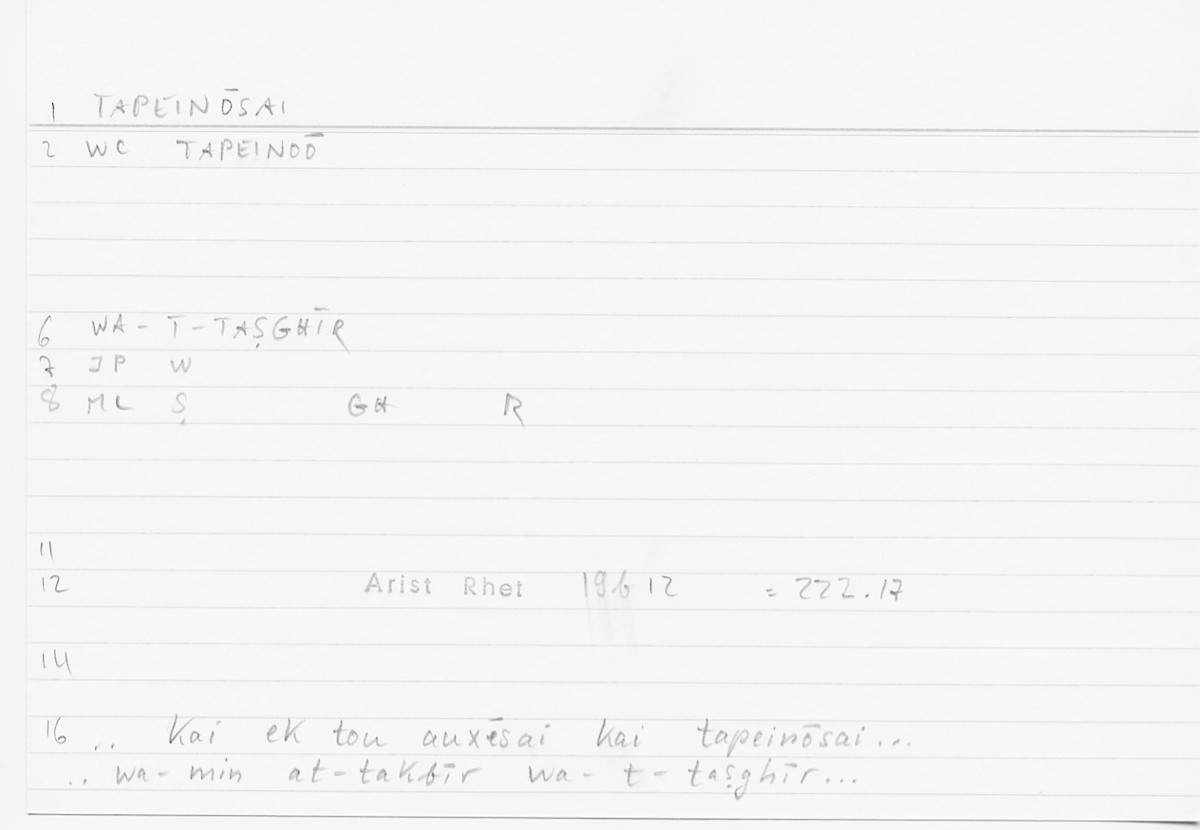 1 TAPEINŌSAI
2 WC TAPEINOŌ
6 WA-T-TAṢGHĪR
7 JP W
8 ML Ṣ GH R
11
12 Arist Rhet 19b 12 = 222.17
14
16 .. kai ek tou auxēsai kai tapeinōsai...
.. wa-min at-takbīr wa-t-taṣghīr...